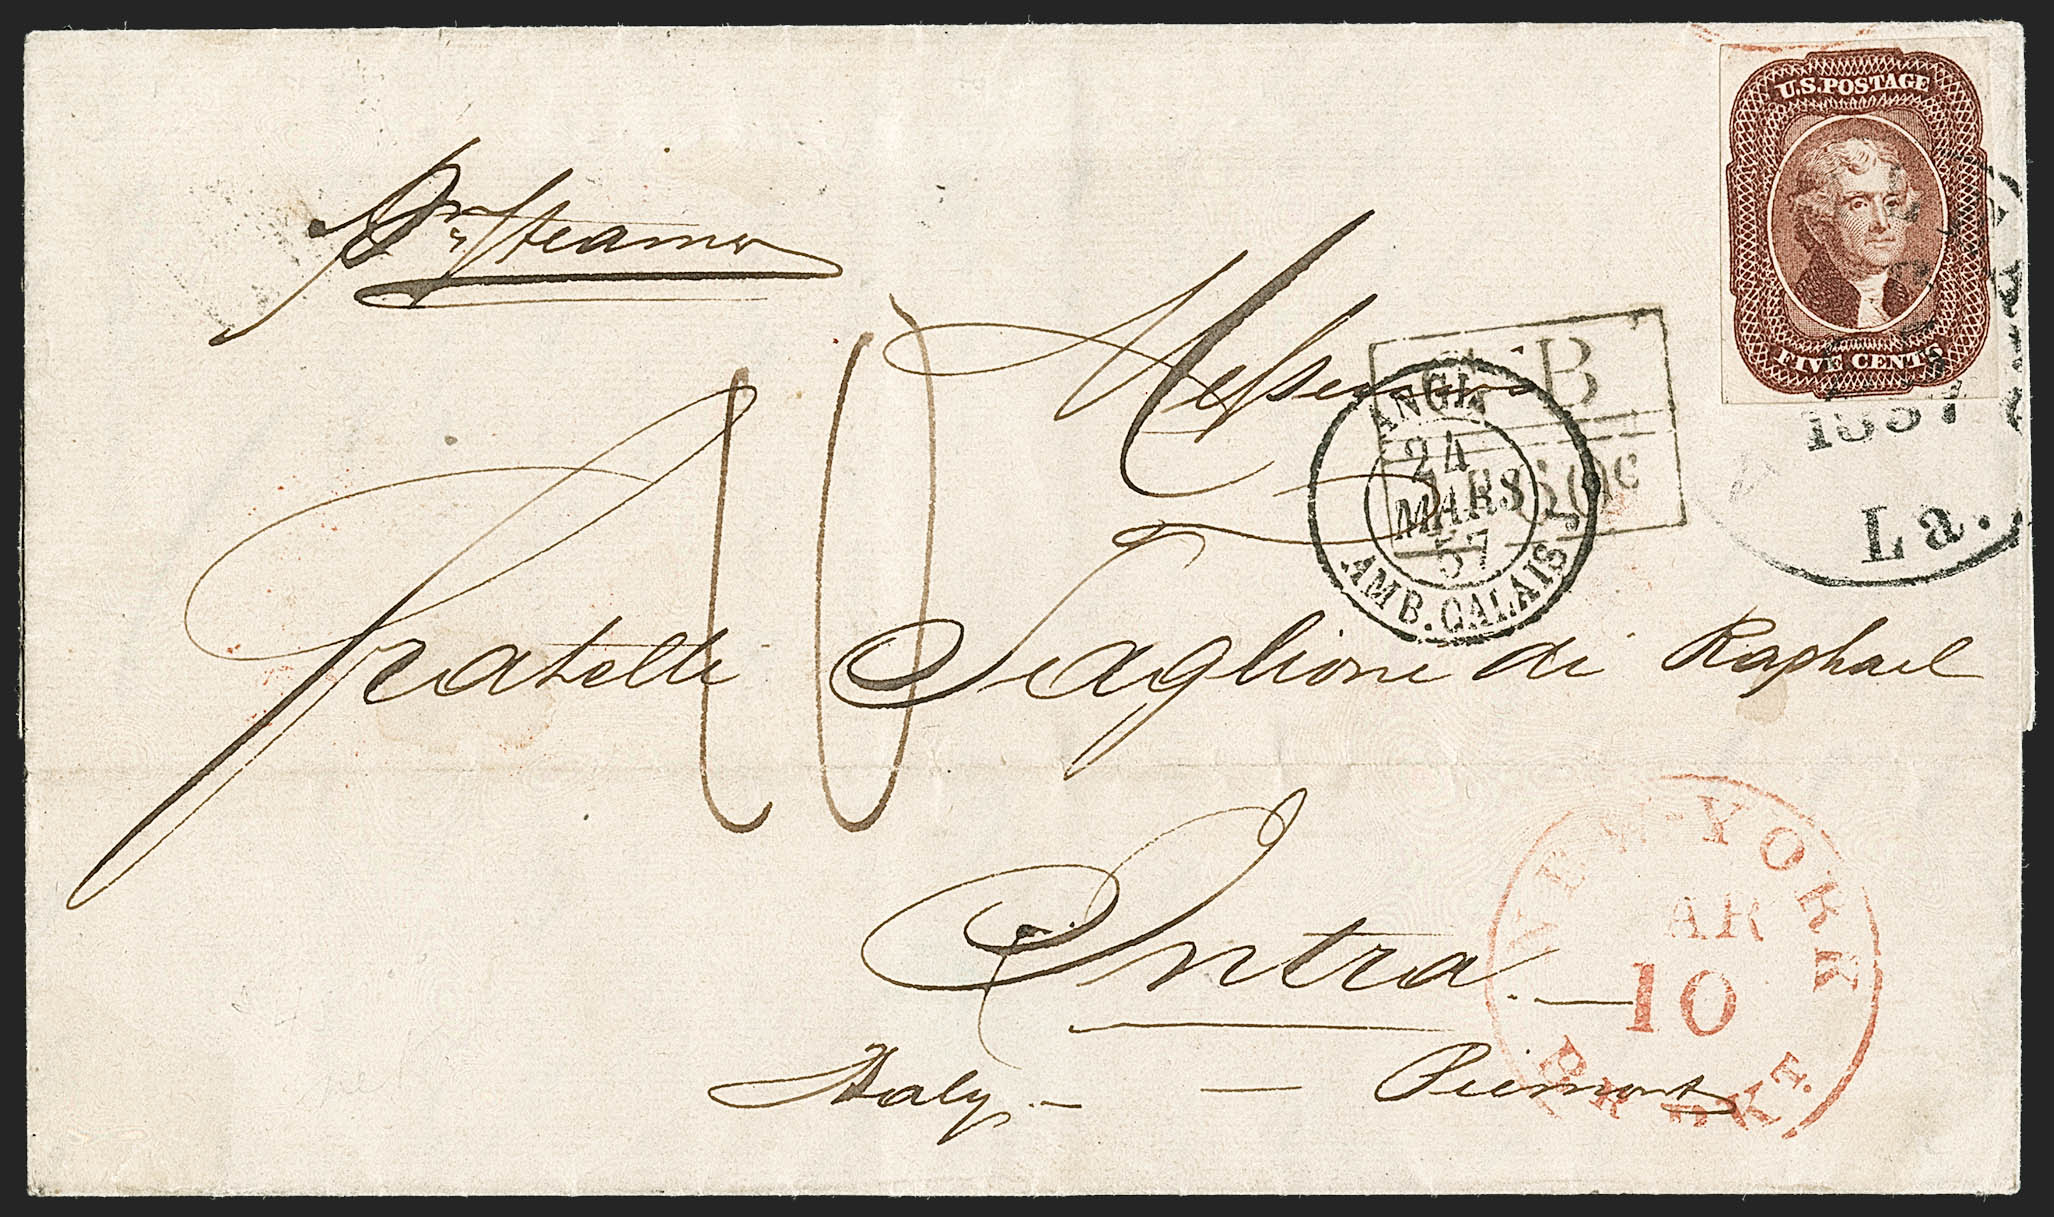 U.S. POSTAGE
FIVE CENTS
Pr Steamer
1857
La.
Messieurs
B
ANGL.
24
MARS
57
AMB. CALAIS
10
Fratelli Scaglione di Raphael
Intra
Italy - - Piemont
NEW-YORK
AR
10
PR PKT.